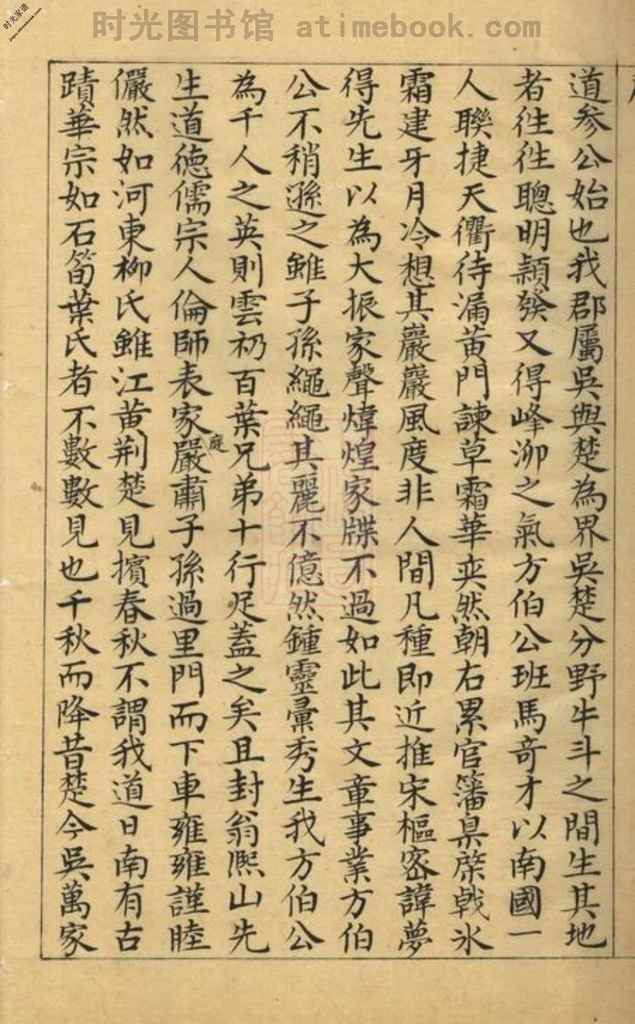 时光图书馆 atimebook.com
时光家谱
道参公始也我郡屬吳與楚為界吳楚分野牛斗之間生其地
者徃徃聰明穎發又得峰泖之氣方伯公班馬奇才以南國一
人聯捷天衢待漏黄門諫草霜華奕然朝右累官籓臬棨戟氷
霜建牙月冷想其巖巖風度非人間凡種即近推宋樞密諱夢
得先生以為大振家聲煒煌家牒不過如此其文章事業方伯
公不稍遜之雖子孫繩繩其麗不億然鍾靈彚秀生我方伯公
為千人之英則雲礽百葉兄弟十行足蓋之矣且封翁熙山先
生道徳儒宗人倫師表家嚴庭肅子孫過里門而下車雍雍謹睦
儼然如河東柳氏雖江黄荆楚見擯春秋不謂我道日南有古
蹟華宗如石笥葉氏者不數數見也千秋而降昔楚今吳萬家